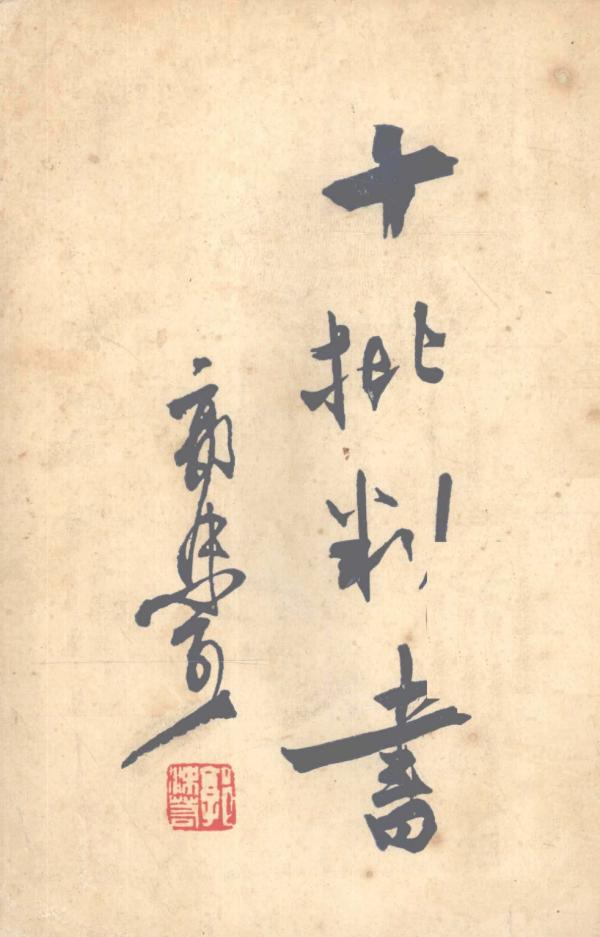 十批判書
郭沫若
郭沫若